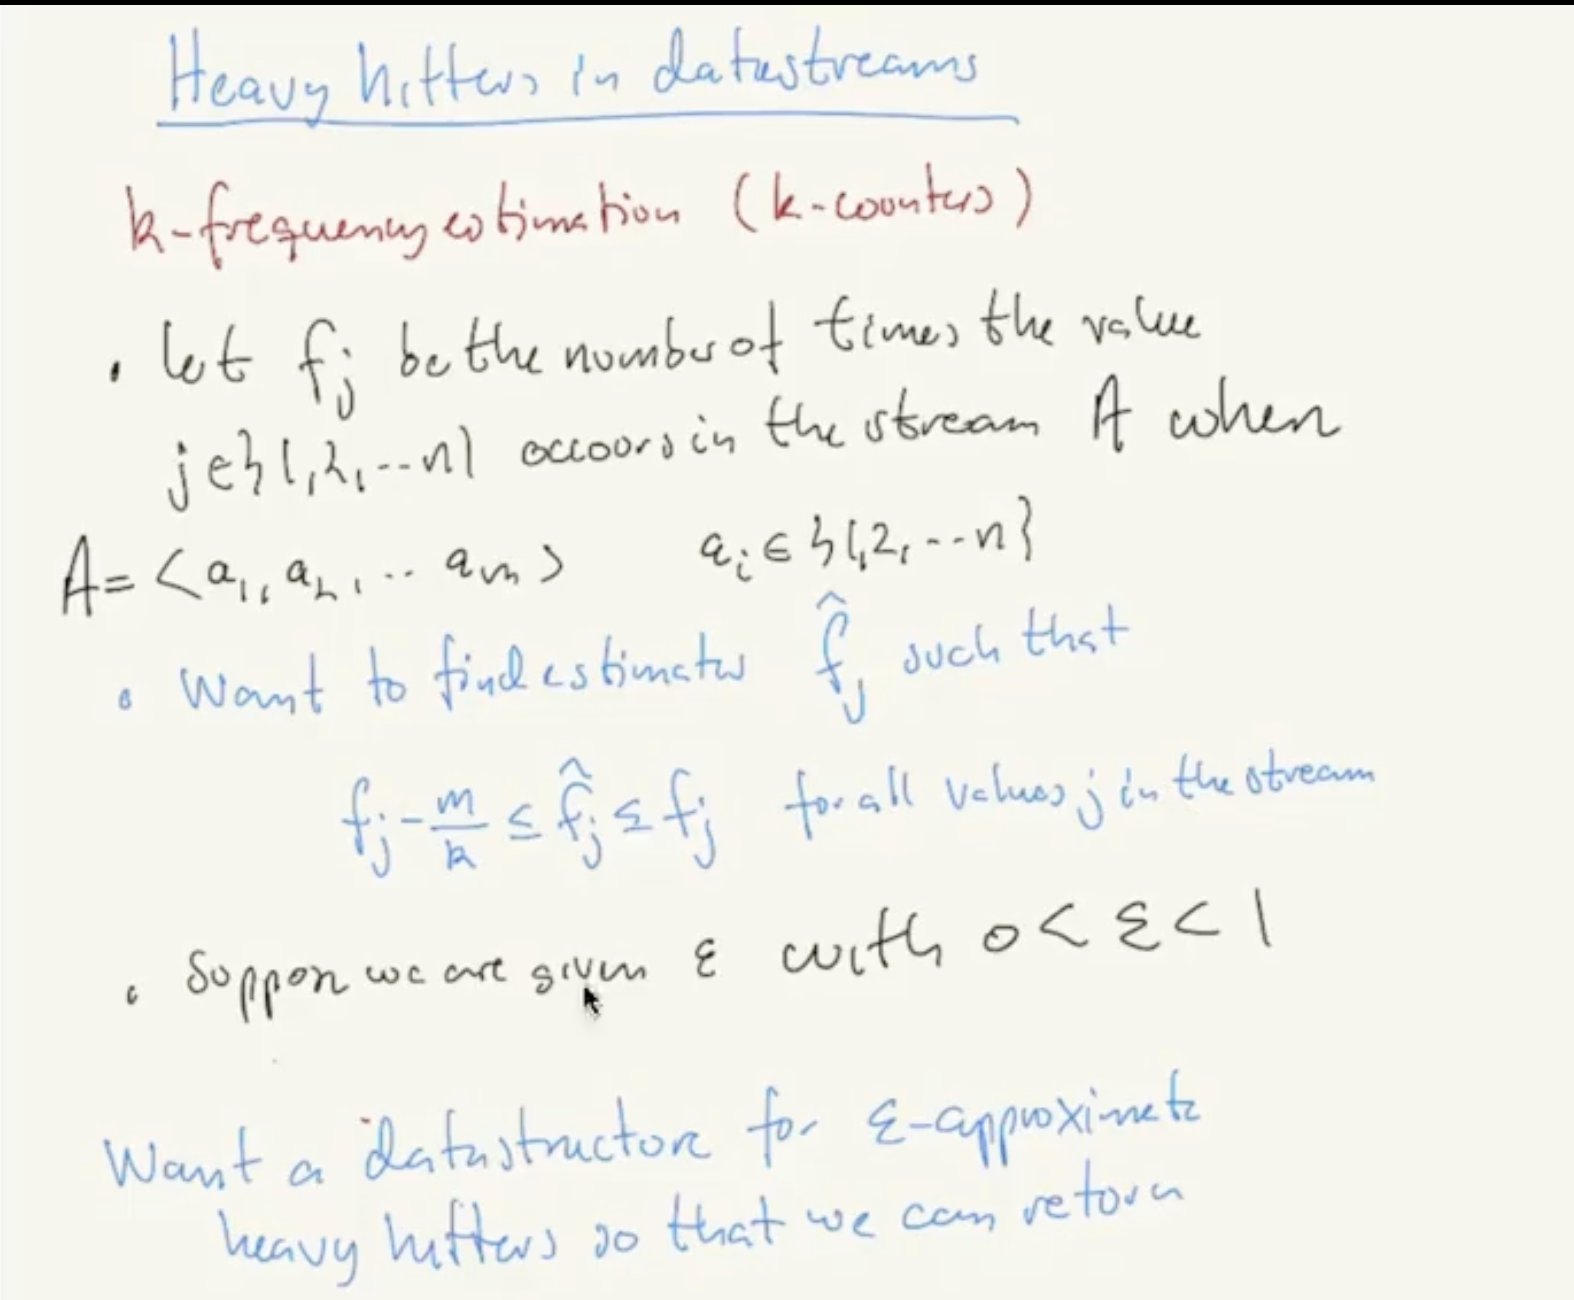 Heavy hitters in datastreams
k-frequency estimation (k-counters)
• let f_j be the number of times the value
j∈{1,2,..n} occoors in the stream A when
A=<a_1, a_2, .. a_m> a_i ∈ {1,2,..n}
• Want to find estimates f̂_j such that
f_j - m/k ≤ f̂_j ≤ f_j for all values j in the stream
• Suppose we are given ε with 0 < ε < 1
Want a datastructure for ε-approximate
heavy hitters so that we can return